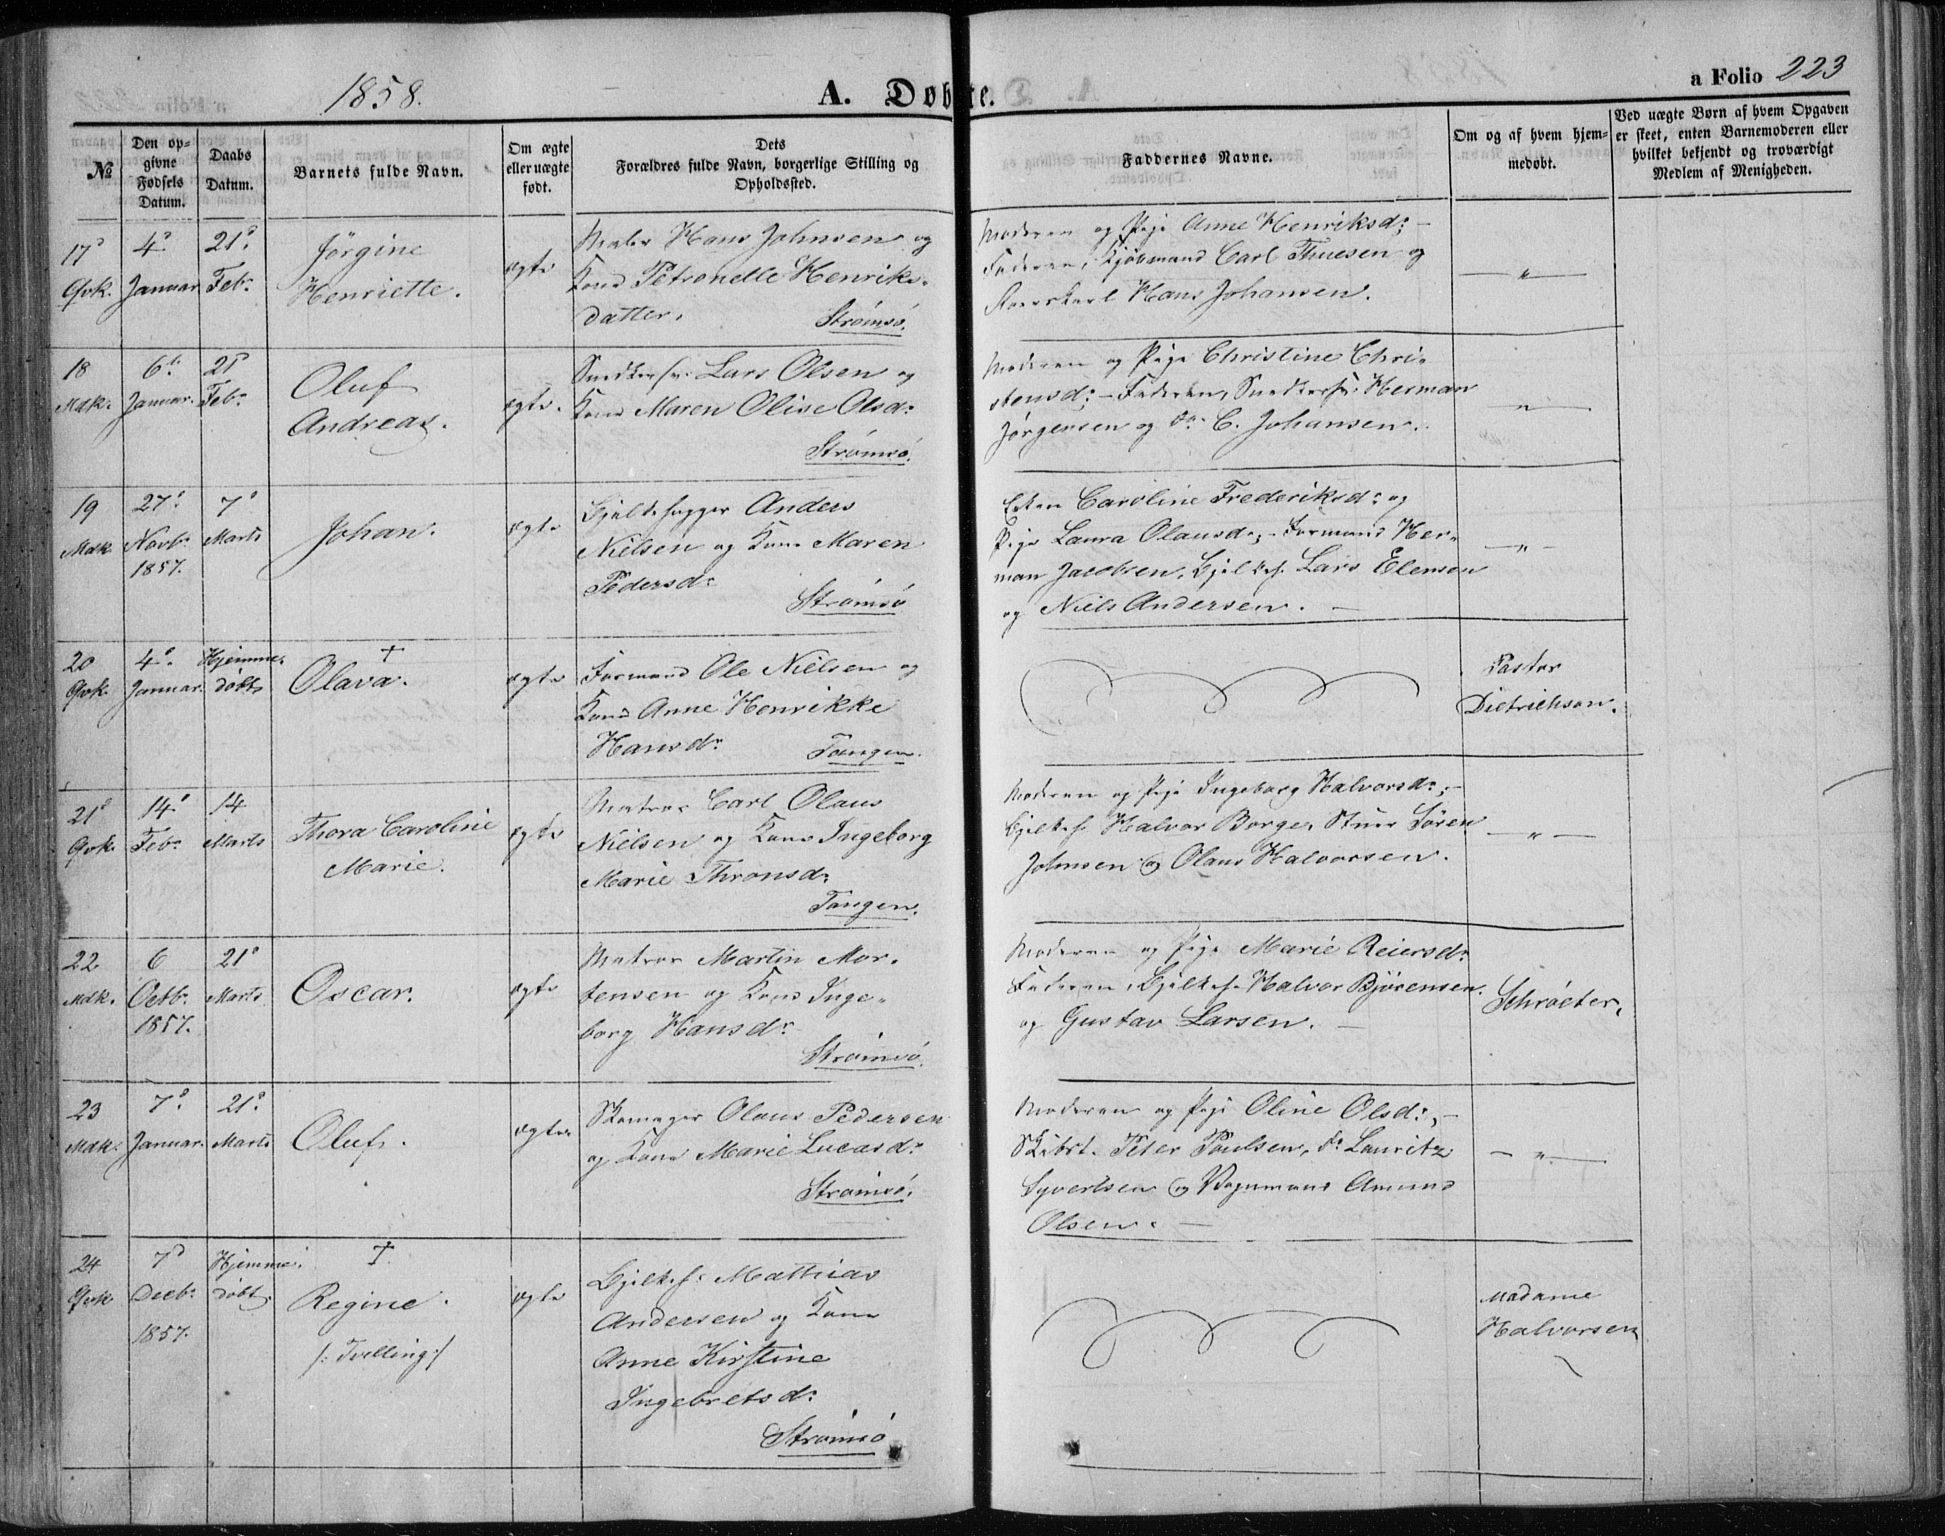 1858.
A. Døbte.
a Folio 223
No
Den op-
givne
Fødsels
Datum.
Daabs
Datum.
Barnets fulde Navn.
Om ægte
eller uægte
født.
Dets
Forældres fulde Navn, borgerlige Stilling og
Opholdssted.
Faddernes Navne.
Om og af hvem hjem-
medøbt.
Ved uægte Børn af hvem Opgaven
er skeet, enten Barnemoderen eller
hvilket bekjendt og troværdigt
Medlem af Menigheden.
17
Qvk.
4
Januar
21
Febr.
Jørgine
Henriette.
ægte
Hans Johnsen og
Kone Petronelle Henriks-
datter.
Strømsø.
Moderen og Pige Anne Henriksdr. -
Faderen, Kjøbmand Carl Thuesen og
Hans Johansen.
"
18
Mdk.
6
Januar.
21
Febr.
Oluf
Andreas.
ægte.
Snedkersv. Lars Olsen og
Kone Maren Oline Olsdr.
Strømsø.
Moderen og Pige Christine Chri-
stensdr. - Faderen, Snedkersv. Herman
Jørgensen og do. C. Johansen.
"
19
Mdk.
27
Novbr.
1857.
7
Marts
Johan.
ægte
Bjelkehugger Anders
Nielsen og Kone Maren
Pedersdr.
Strømsø
Enken Caroline Frederiksdr. og
Pige Laura Olausdr. - Formand Her-
man Jacobsen, Bjelkeh. Lars Elensen
og Niels Andersen. -
"
20
Qvk.
4
Januar.
Hjemme-
døbt
†
Olava.
ægte
Formand Ole Nielsen og
Kone Anne Henrikke
Hansdr.
Tangen.
Pastor
Dietrichson.
21
Qvk.
14
Febr.
14
Marts
Thora Caroline
Marie.
ægte
Matros Carl Olaus
Nielsen og Kone Ingeborg
Marie Thronsdr.
Tangen.
Moderen og Pige Ingeborg Halvorsdr. -
Bjelkeh. Halvor Borge, Stuer Søren
Johnsen og Olaus Halvorsen.
"
22
Mdk.
6
Octbr.
1857.
21
Marts
Oscar.
ægte
Matros Martin Mor-
tensen og Kone Inge-
borg Hansdr.
Strømsø
Moderen og Pige Marie Reiersdr.
Faderen, Bjelkeh. Halvor Bjørensen
og Gustav Larsen. -
Schrøeter.
23
Mdk.
7
Januar.
21
Marts
Oluf.
ægte
Skomager Olaus Pedersen
og Kone Marie Lucasdr.
Strømsø.
Moderen og Pige Oline Olsdr. -
Skibst. Peter Poulsen, do. Lauritz
Syvertsen og Vognmand Amund
Olsen. -
"
24
Qvk
7
Decbr.
1857.
Hjemme-
døbt
†
Regine.
/: Tvilling :/
ægte
Bjelkeh. Mathias
Andersen og Kone
Anne Kirstine
Ingebretsdr.
Strømsø
Madame
Halvorsen